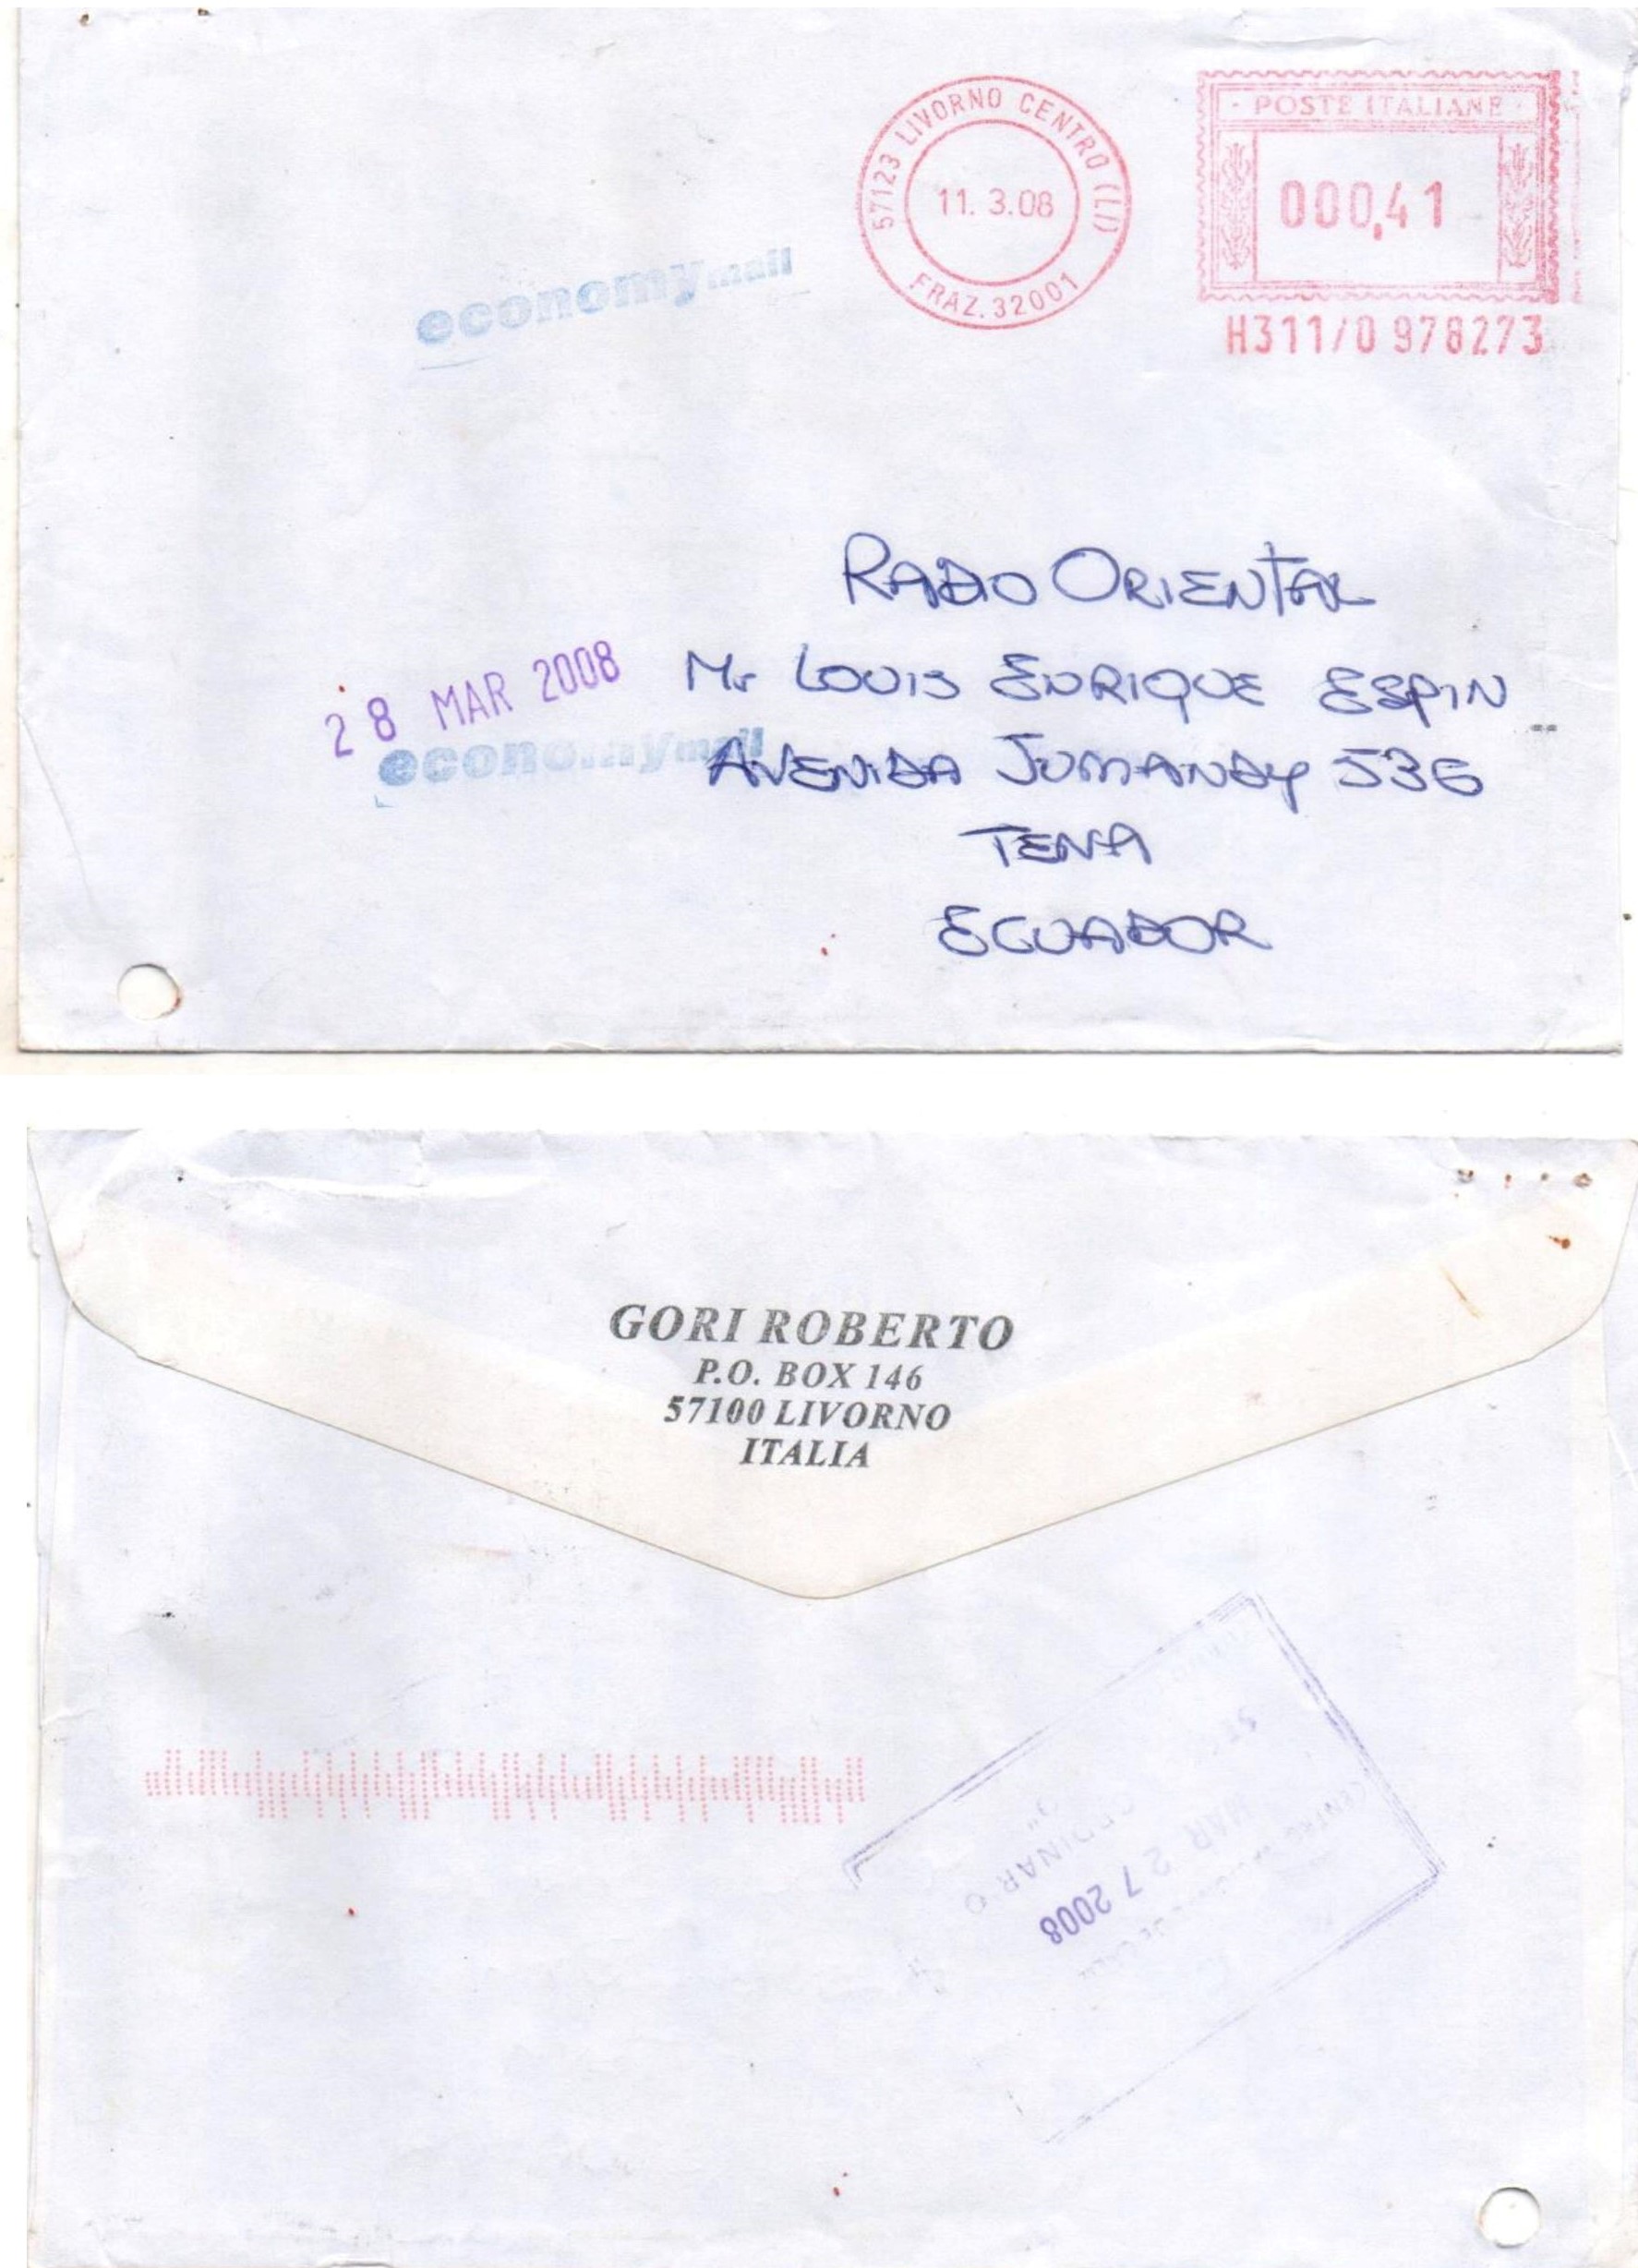 57123 LIVORNO CENTRO (LI)
11. 3.08
FRAZ. 32001
· POSTE ITALIANE ·
000,41
H311/0 978273
economy mail
RADIO ORIENTAL
Mr LOUIS ENRIQUE ESPIN
28 MAR 2008
economy mail
AVENIDA JUMANDY 536
TENA
ECUADOR
GORI ROBERTO
P.O. BOX 146
57100 LIVORNO
ITALIA
CENTRO
MAR 27 2008
ORDINARIO